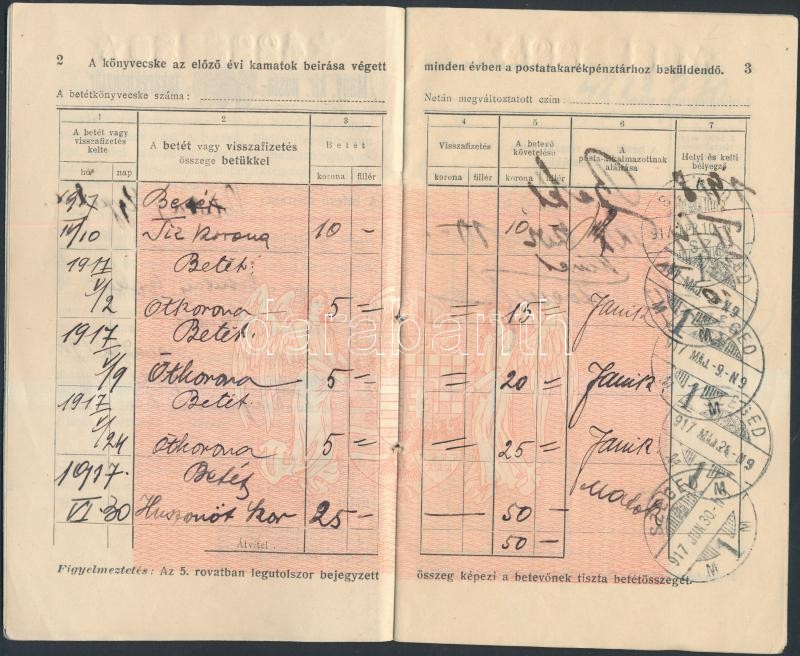 2 A könyvecske az előző évi kamatok beirása végett
A betétkönyvecske száma:
1 2 3
A betét vagy visszafizetés kelte
A betét vagy visszafizetés összege betükkel
Betét
hó nap korona fillér
1917 Betét
IV/10 Tiz korona 10 —
1917 Betét
V/2 Ötkorona 5 —
1917 Betét
V/9 Ötkorona 5 —
1917 Betét
V/24 Ötkorona 5 —
1917 Betét
VI 30 Huszonöt kor 25 —
Átvitel
Figyelmeztetés: Az 5. rovatban legutolszor bejegyzett
minden évben a postatakarékpénztárhoz beküldendő. 3
Netán megváltoztatott czim:
4 5 6 7
Visszafizetés
A betevő követelése
A posta-alkalmazottnak aláirása
Helyi és kelti bélyegző
korona fillér korona fillér
10
15 — Janik
20 — Janik
25 — Janik
50 —
50 —
összeg képezi a betevőnek tiszta betétösszegét.
917 ÁPR 10
SZEGED
917 MÁJ. -9-N9
917 MÁJ. 24-N9
SZEGED
917 JUN. 30-N
darabanth